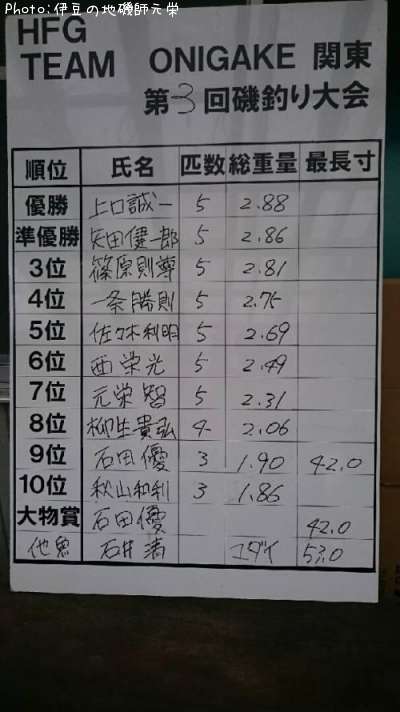 Photo:伊豆の地磯師元栄
HFG
TEAM ONIGAKE 関東
第3回磯釣り大会
順位 氏名 匹数 総重量 最長寸
優勝 上口誠一 5 2.88
準優勝 矢田健一郎 5 2.86
3位 篠原則尊 5 2.81
4位 一条勝則 5 2.75
5位 佐々木利明 5 2.69
6位 西栄光 5 2.49
7位 元栄智 5 2.31
8位 柳生貴弘 4 2.06
9位 石田優 3 1.90 42.0
10位 秋山和利 3 1.86
大物賞 石田優 42.0
他魚 石井清 コダイ 53.0